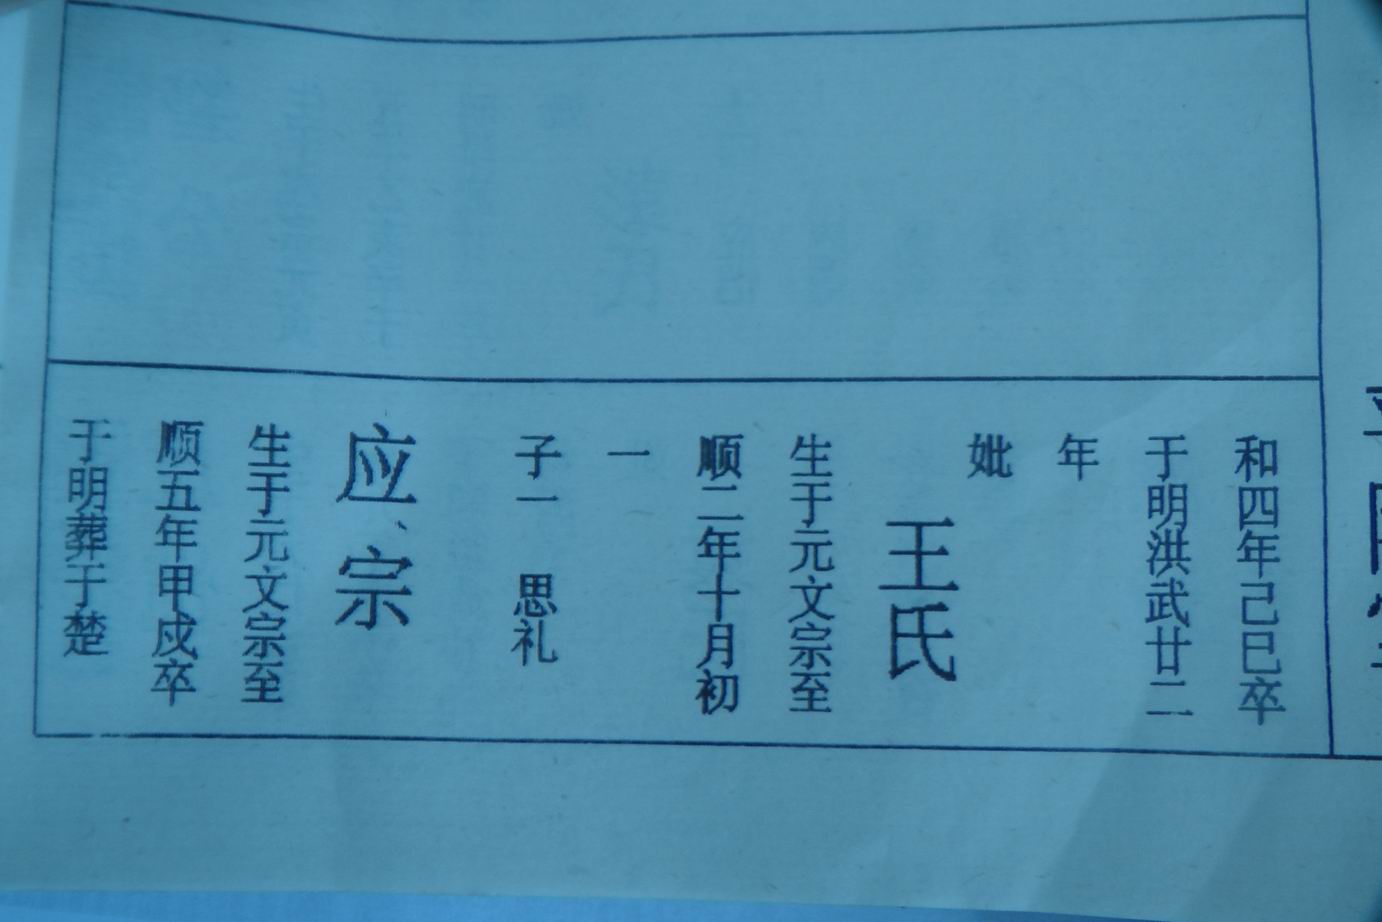 和四年己巳卒
于明洪武廿二
年
妣
王氏
生于元文宗至
顺二年十月初
一
子一 思礼
应宗
生于元文宗至
顺五年甲戍卒
于明葬于楚